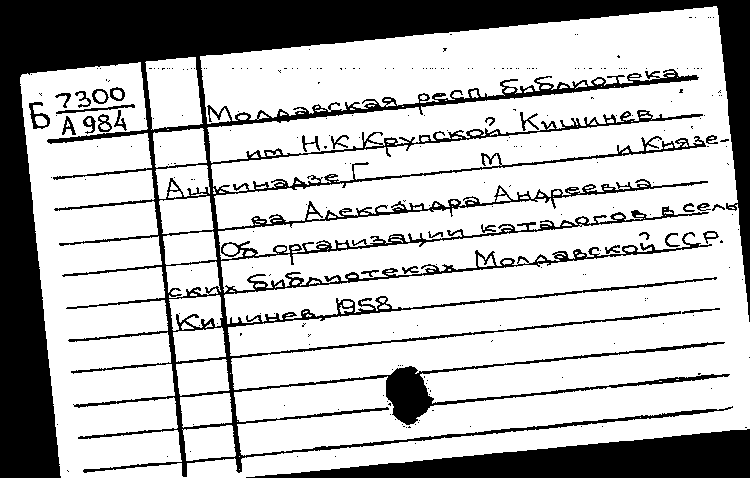 Б 7300
А 984
Молдавская респ. библиотека
им. Н.К.Крупской. Кишинев.
Ашкинадзе, Г М и Князе-
ва, Александра Андреевна
Об организации каталогов в сель
ских библиотеках Молдавской ССР.
Кишинев, 1958.